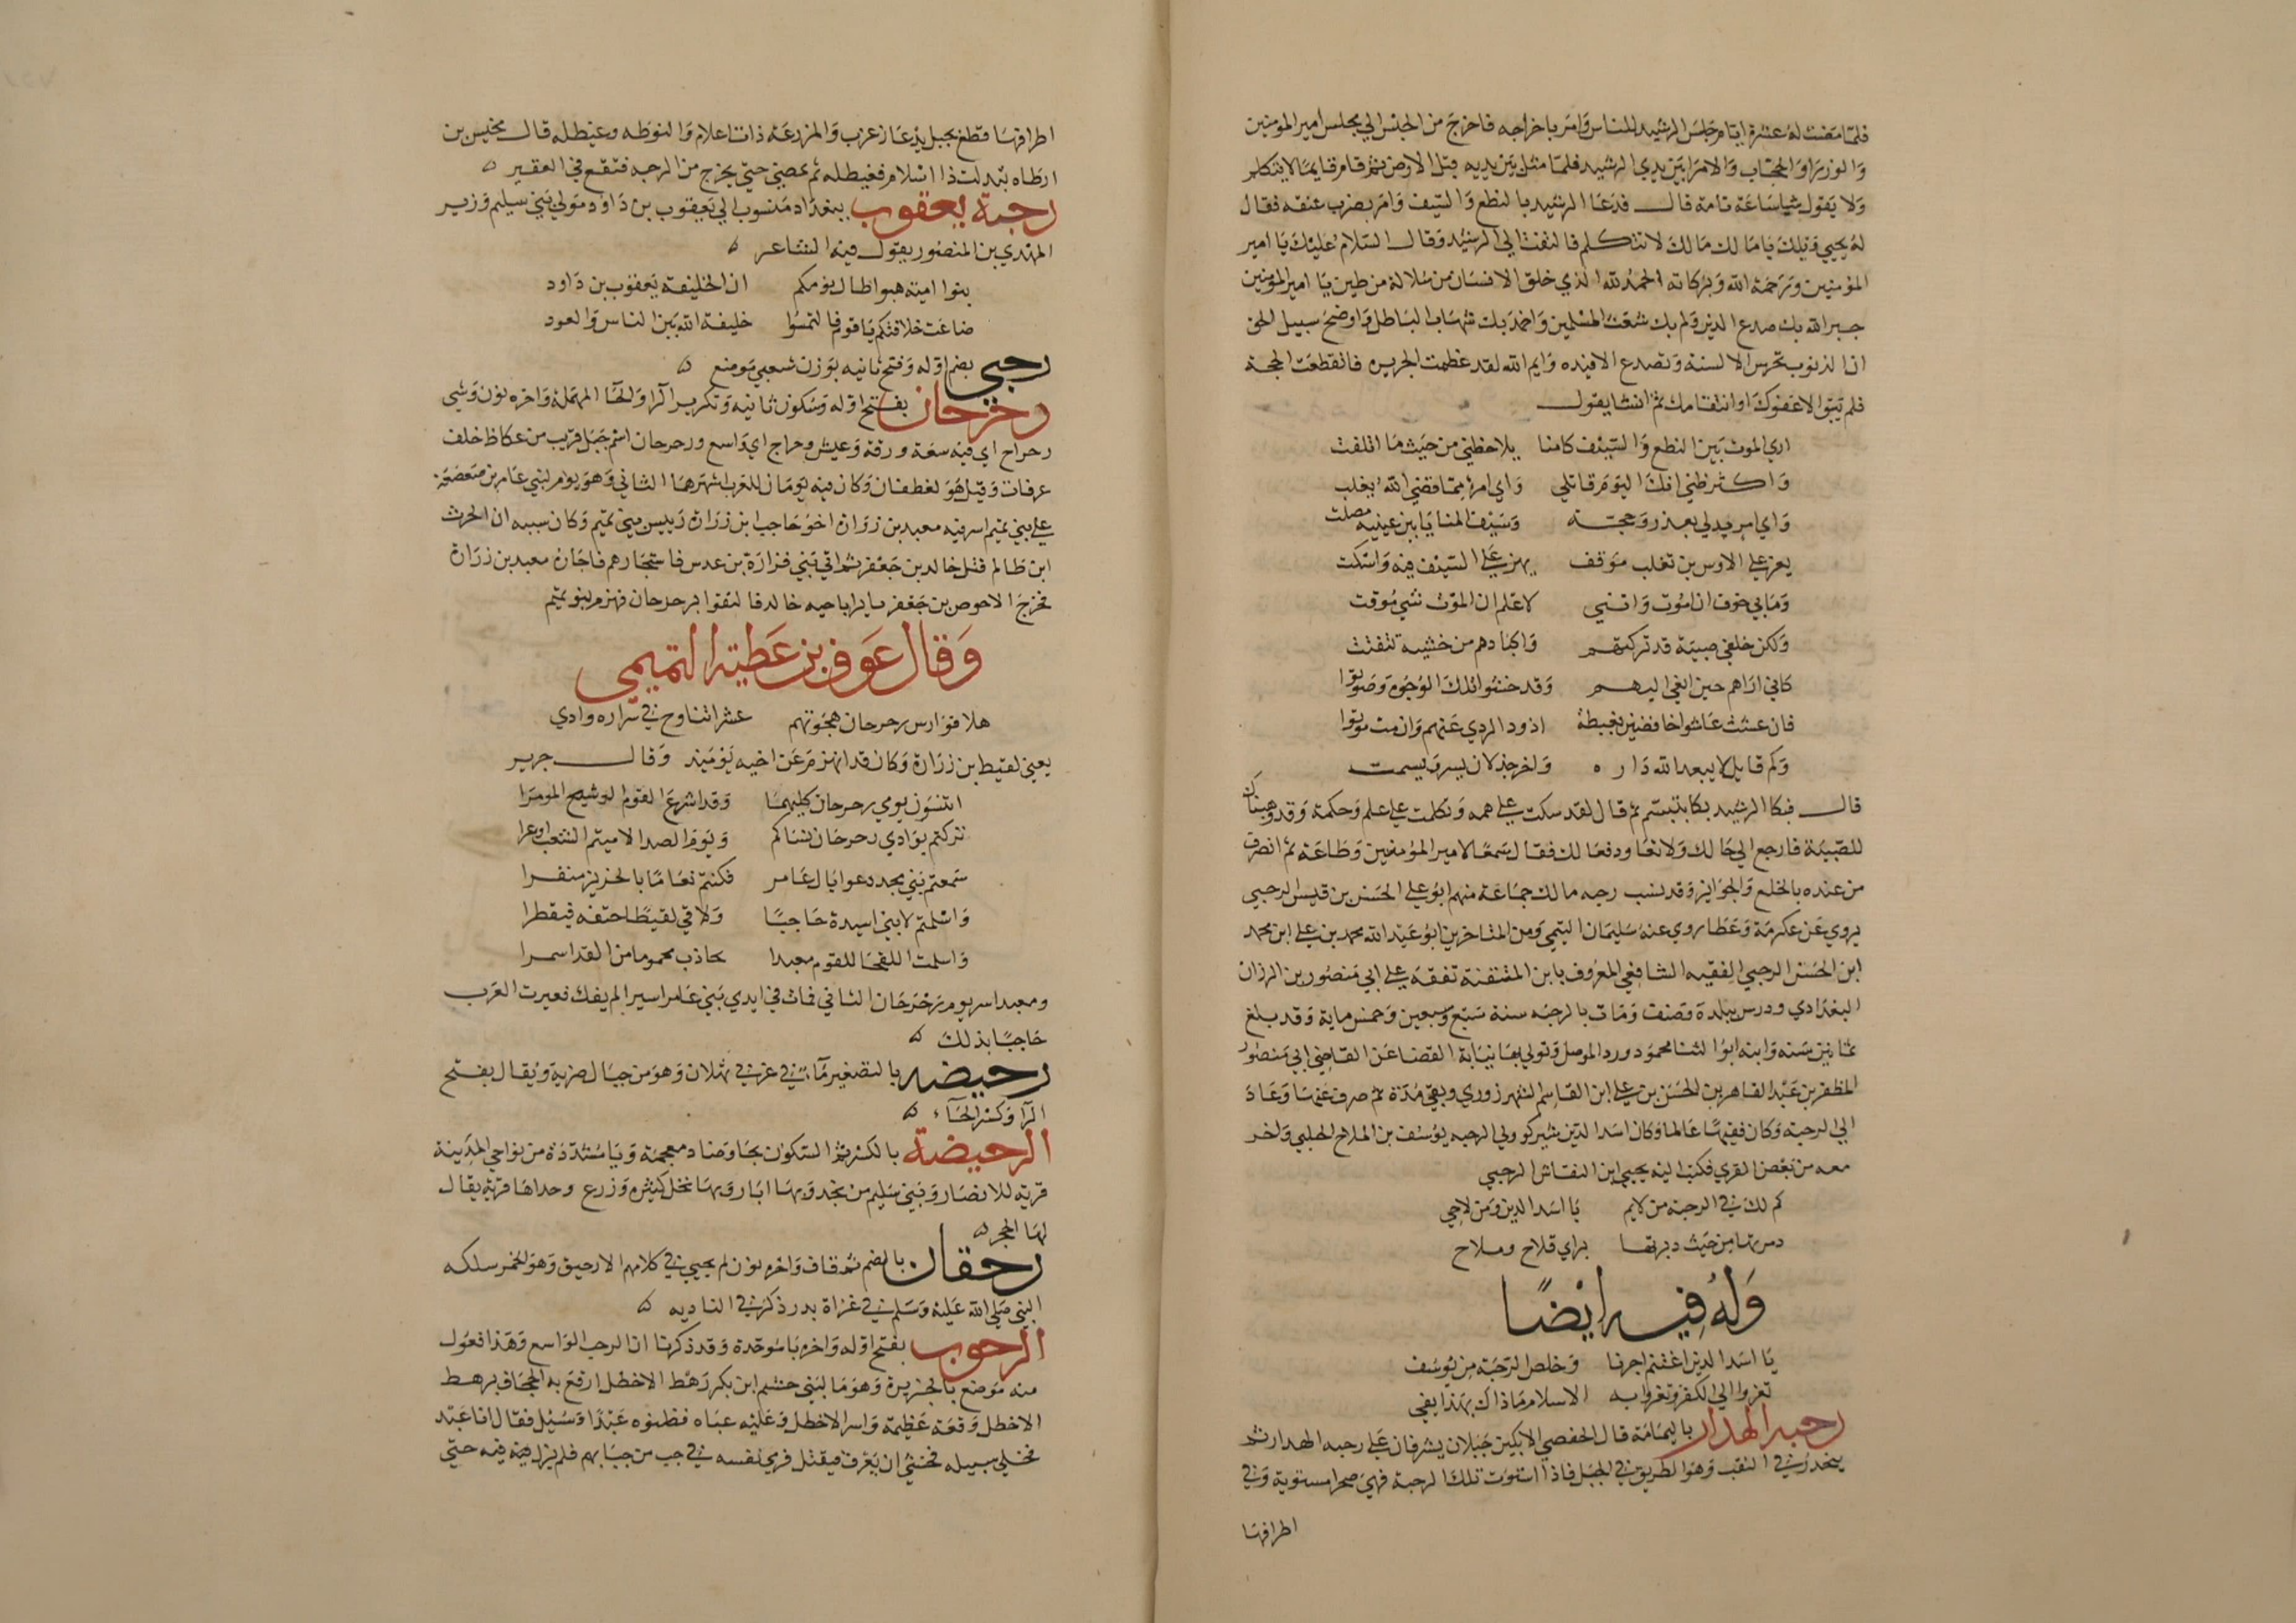 فلما مضت له عشرة ايام جلس الرشيد للناس وامر باخراجه فاخرج من الحبس الي مجلس امير المومنين
والوزرا والحجاب والامرا بين يدي الرشيد فلما مثل بين يديه قبل الارض ثم قام قايما لا يتكلم
ولا يقول شيا ساعة تامة قال فدعا الرشيد بالنطع والسيف وامر بضرب عنقه فقال
له يحيي ويلك يا مالك مالك لا تتكلم فالتفت الي الرشيد وقال السلام عليك يا امير
المومنين ورحمة الله وبركاته الحمد لله الذي خلق الانسان من سلالة من طين يا امير المومنين
جبر الله بك صدع الدين ولم بك شعث المسلمين واخمد بك شهاب الباطل واوضح سبيل الحق
ان الذنوب تخرس الالسنة وتصدع الافيده وايم الله لقد عظمت الجريره فانقطعت الحجة
فلم تبق الا عفوك او انتقامك ثم انشا يقول
اري الموت بين النطع والسيف كامنا يلاحظني من حيث ما اتلفت
واكثر ظني انك اليوم قاتلي واي امرء مما قضي الله يغلب
واي امرء يدلي بعذر وحجة وسيف المنايا بين عينيه مصلت
يعز علي الاوس بن تغلب موقف يهز علي السيف فيه واسكت
وما بي خوف ان اموت وانني لاعلم ان الموت شي موقت
ولكن خلفي صبية قد تركتهم واكبادهم من خشيه تتفتت
كاني اراهم حين انعي اليهم وقد خمشوا تلك الوجوه وصوتوا
فان عشت عاشوا خافضين بغبطة اذود الردي عنهم وان مت موتوا
وكم قايل لا يبعد الله داره واخر جذلان يسر ويشمت
قال فبكا الرشيد بكا بتبسم ثم قال لقد سكت علي همه وتكلمت علي علم وحكمة وقد وهبناك
للصبية فارجع الي حالك ولا تعاود فعالك فقال سمعا لامير المومنين وطاعة ثم انصرف
من عنده بالخلع والجوايز وقد نسب رحبه مالك جماعة منهم ابو علي الحسن بن قيس الرحبي
يروي عن عكرمة وعطا روي عنه سليمان التيمي ومن المتاخرين ابو عبد الله محمد بن علي ابن محمد
ابن الحسن الرحبي الفقيه الشافعي المعروف بابن المتقنة تفقه علي ابي منصور بن الرزاز
البغدادي ودرس ببلدة وصنف ومات بالرحبه سنة سبع وسبعين وخمس ماية وقد بلغ
ثمانين سنه وابنه ابو الثنا محمود ورد الموصل وتولي بها نيابة القضا عن القاضي ابي منصور
المظفر بن عبد القاهر بن الحسن بن علي ابن القاسم الشهرزوري وبقي مدة ثم صرف عنها وعاد
الي الرحبة وكان فقيها عالما وكان اسد الدين شيركو ولي الرحبه يوسف بن الملاح الحلبي واخر
معه من بعض القري فكتب اليه يحيي ابن النقاش الرحبي
كم لك في الرحبة من لايم يا اسد الدين ومن لاحي
دمرتها من حيث دبرتها براي فلاح وملاح
وله فيه ايضا
يا اسد الدين اغتنم اجرنا وخلص الرحبة من يوسف
تغزوا الي الكفر وتغزوا به الاسلام ماذاك بهذا يفي
رحبه الهدار باليمامة قال الحفصي الابكين جبلان يشرفان علي رحبه الهدار ثم
ينحدر في النقب وهو الطريق في الجبل فاذا استوت تلك الرحبة فهي صحرا مستوية وفي
اطرافها
اطرافها قطع بجبل يدعا زعزب والمزرعة ذات اعلام والنوطه وغيطله قال مخيس بن
ارطاه بتدلت ذا اسلام فغيطله ثم تمضي حتي يخرج من الرحبه فتقع في العقير
رحبة يعقوب ببغداد منسوب الي يعقوب بن داود مولي بني سليم وزير
المهدي بن المنصور يقول فيه الشاعر
بنوا امية هبوا طال نومكم ان الخليفة يعقوب بن داود
ضاعت خلافتكم يا قوم فالتمسوا خليفة الله بين الناس والعود
رحبي بضم اوله وفتح ثانيه بوزن شعبي موضع
رحرحان بفتح اوله وسكون ثانيه وتكرير الرا والحا المهملة واخره نون وشي
رحراح اي فيه سعة ورقة وعيش رحراح اي واسع ورحرحان اسم جبل قريب من عكاظ خلف
عرفات وقيل هو لغطفان وكان فيه يومان للعرب اشهرهما الثاني وهو يوم لبني عامر بن صعصعة
علي بني تميم اسر فيه معبد بن زرارة اخو حاجب ابن زرارة رييس بني تميم وكان سببه ان الحرث
ابن ظالم قتل خالد بن جعفر ثم اتي بني فزارة بن عدس فاستجارهم فاجاره معبد بن زرارة
فخرج الاحوص بن جعفر ثايرا باخيه خالد فالتقوا برحرحان فهزم بنو تميم
وقال عوف بن عطية التميمي
هلا فوارس رحرحان هجوتهم عشرا تناوح في سراره وادي
يعني لقيط بن زرارة وكان قد انهزم عن اخيه يوميذ وقال جرير
اتنسون يومي رحرحان كليهما وقد اشرع القوم الوشيج المومرا
تركتم بوادي رحرحان نساكم ويوم الصدا لاميتم الشعب اوعرا
سمعتم بني مجد دعوا يال عامر فكنتم نعاما بالحزيز منفرا
واسلمتم لابني اسيدة حاجبا ولاقي لقيطا حتفه فيقطرا
واسلمت اللفحا للقوم معبدا تجاذب مخموما من القد اسمرا
ومعبد اسر يوم رحرحان الثاني فمات في ايدي بني عامر اسيرا لم يفك فعيرت العرب
حاجبا بذلك
رحيضه بالتصغير ماء في غربي ثهلان وهو من جبال ضرية ويقال بفتح
الرا وكسر الحاء
الرحيضة بالكسر ثم السكون بحا وضاد معجمة ويا مشددة من نواحي المدينة
قرية للانصار وبني سليم من نجد وبها ابار وبها نخل كثير وزرع وحداها قرية يقال
لها الحجر
رحقان بالضم ثم قاف واخره نون لم يجيي في كلامهم الا رحيق وهو الخمر سلكه
النبي صلي الله عليه وسلم في غزاة بدر ذكر في النازيه
الرحوب بفتح اوله واخره با موحدة وقد ذكرنا ان الرحب الواسع وهذا فعول
منه موضع بالجزيرة وهو ما لبني جشم ابن بكر رهط الاخطل ارقع به الجحاف برهط
الاخطل وقعة عظيمة واسر الاخطل وعليه عباه فظنوه عبدا وسئل فقال انا عبد
فخلي سبيله فخشي ان يعرف فيقتل فرمي نفسه في جب من جبابهم فلم يزل فيه حتي